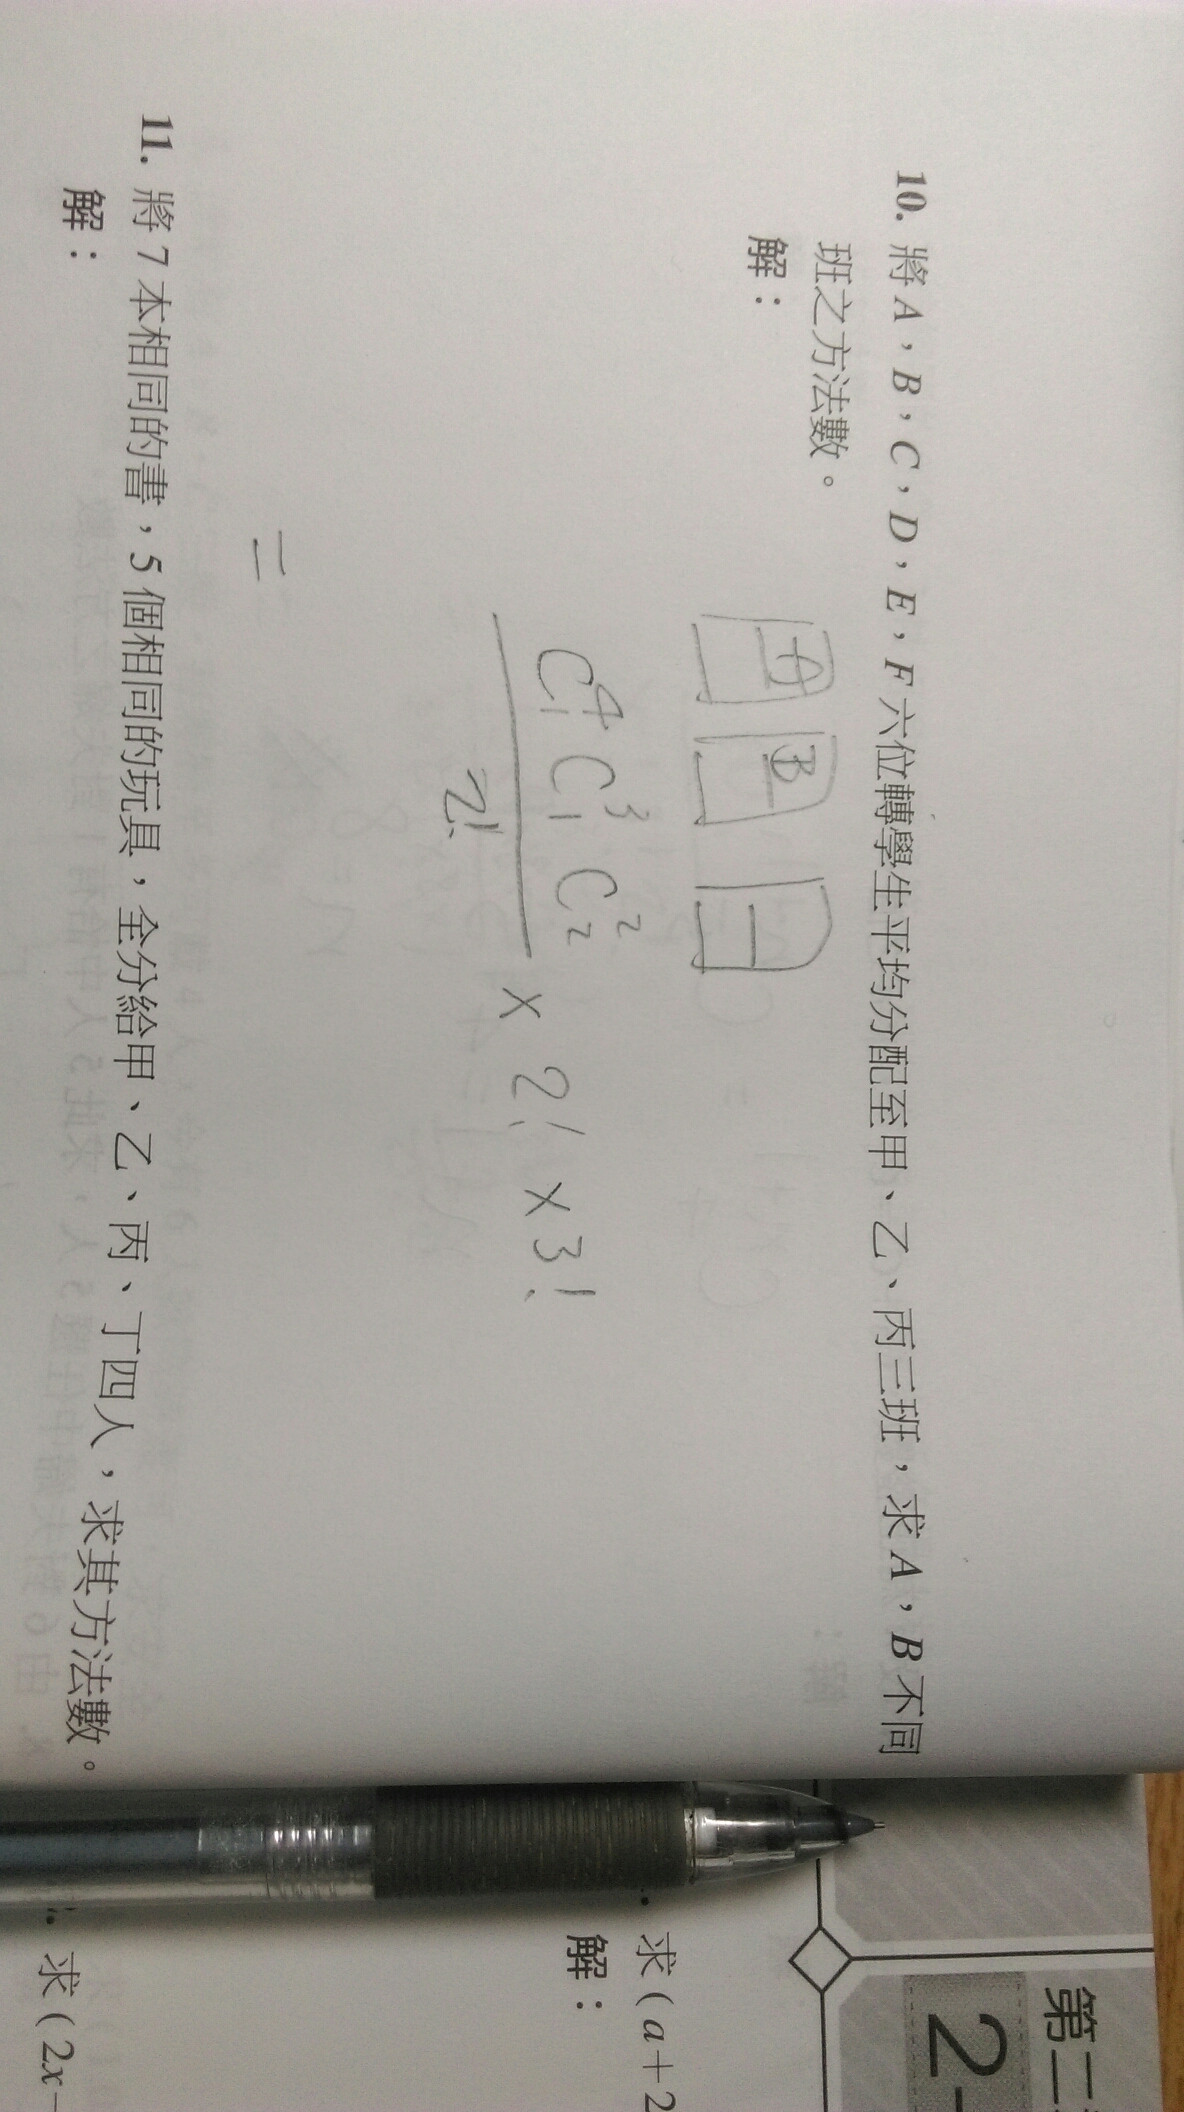 10. 將 A，B，C，D，E，F 六位轉學生平均分配至甲、乙、丙三班，求 A，B 不同
班之方法數。
解：
A B
C⁴₁ C³₁ C²₂
2! × 2! × 3!
=
11. 將 7 本相同的書，5 個相同的玩具，全分給甲、乙、丙、丁四人，求其方法數。
解：
第二
2-
求 (a+2
解：
求 (2x-